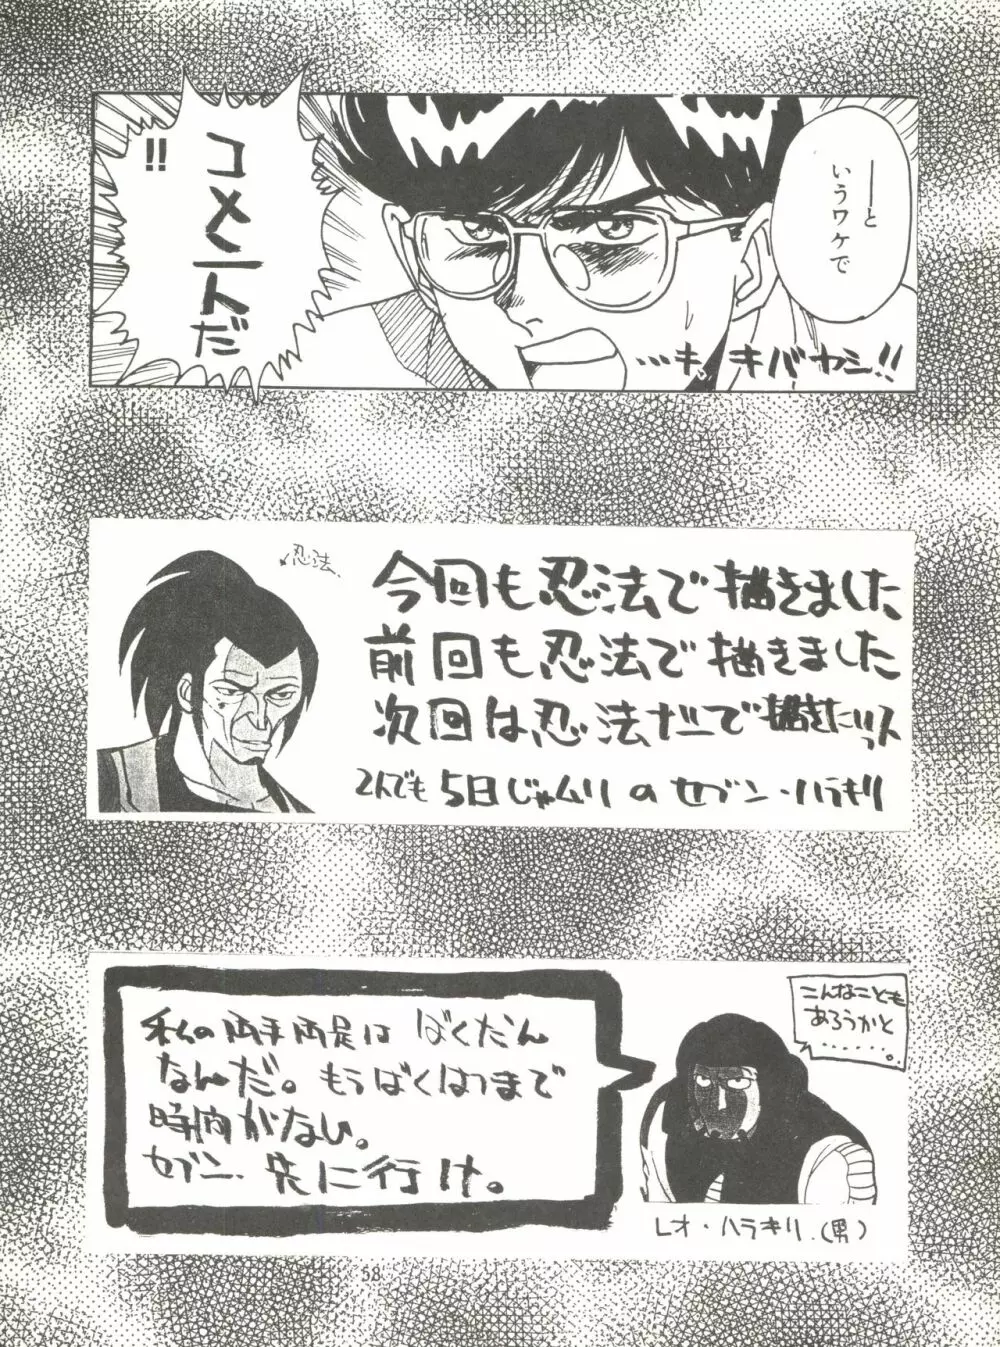 ──と
いうワケで
コメントだ
!!
…キ、キバヤシ!!
忍法
今回も忍法で描きました
前回も忍法で描きました
次回は忍法だーで描きたいっス
2人でも5日じゃムリのセブン・ハラキリ
こんなことも
あろうかと
………。
私の両手両足はばくだん
なんだ。もうばくはつまで
時間がない。
セブン、先に行け。
レオ・ハラキリ.(男)
58